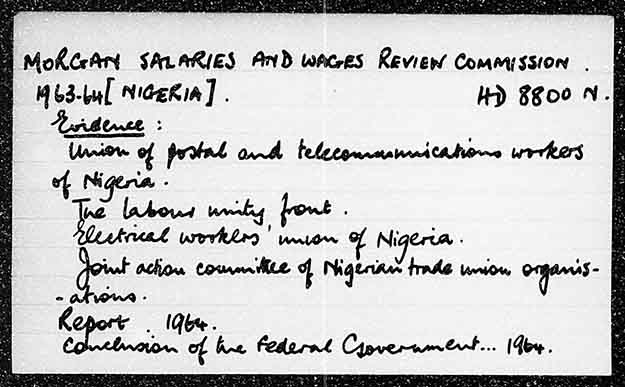 MORGAN SALARIES AND WAGES REVIEW COMMISSION.
1963-64 [NIGERIA]. HD 8800 N.
Evidence:
Union of postal and telecommunications workers
of Nigeria.
The labour unity front.
Electrical workers' union of Nigeria.
Joint action committee of Nigerian trade union organis-
-ations.
Report. 1964.
Conclusion of the Federal Government... 1964.